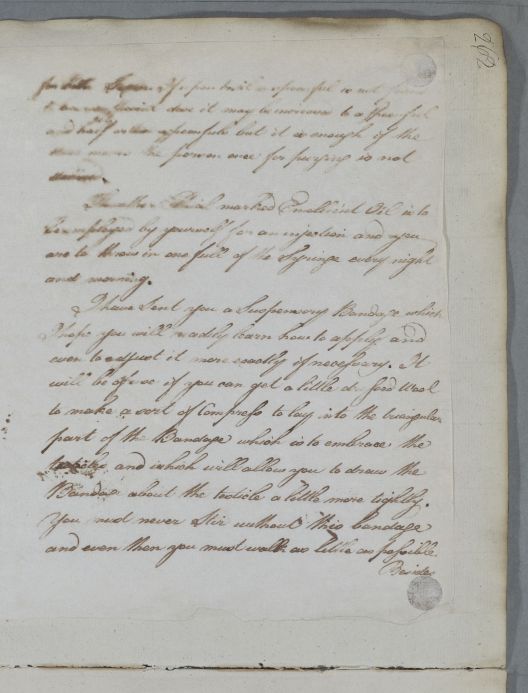 262
for If you find a spoonful is not
to dose it may be increase to a spoonful
and half or two spoonfuls but it is enough of the
the person once for purging is not
The other Phial marked Emollient Oil is to
be employed by yourself for an injection and you
are to throw in one full of the Syringe every night
and morning.
I have sent you a Suspensory Bandage which
I hope you will readily learn how to apply and
even to adjust it more exactly if necessary. It
will be of use if you can get a little Wool
to make a sort of Compress to lay into the triangular
part of the Bandage which is to embrace the
and which will allow you to draw the
Bandage about the testicle a little more tightly.
You must never Stir without this bandage
and even then you must walk as little as possible
Besides